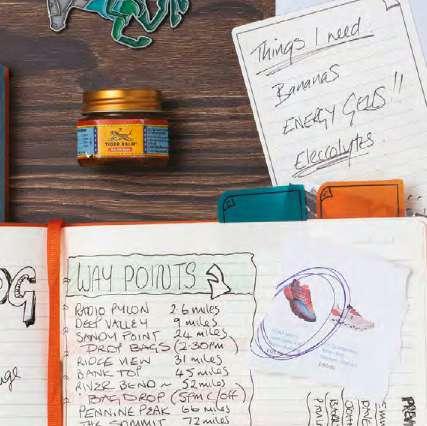 Things I need
Bananas
ENERGY GELS!!
Elecrolytes
TIGER BALM
OG
WAY POINTS
RADIO PYLON 2.6 miles
DEEP VALLEY 9 miles
SANDY POINT 24 miles
DROP BAGS (2:30PM)
RIDGE VIEW 31 miles
BANK TOP 45 miles
RIVER BEND ~ 52 miles
BAG DROP (5PM C/OFF)
PENNINE PEAK 66 miles
THE SUMMIT 72 miles